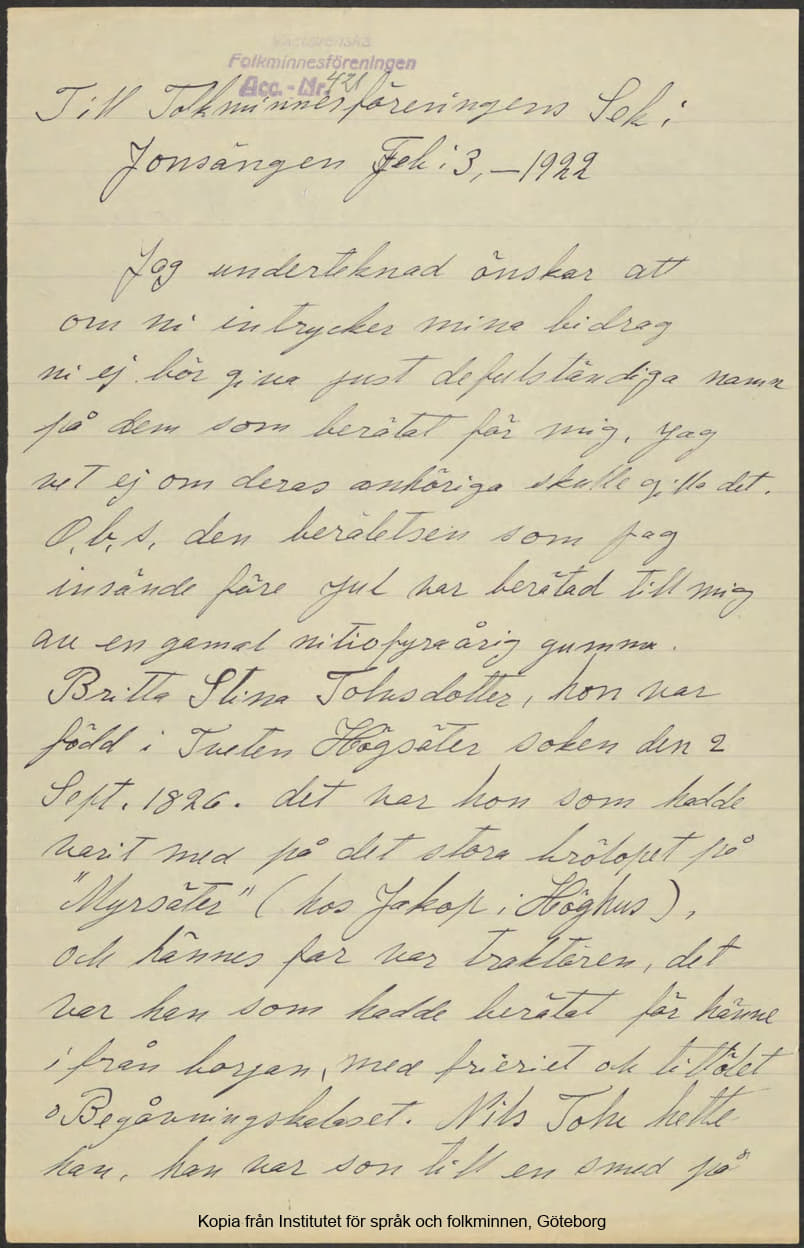 Västsvenska
Folkminnesföreningen
Acc. - Nr. 421
Till Folkminnesföreningens Sek:
Jonsängen Feb: 3, – 1922
Jag underteknad önskar att
om ni intrycker mina bidrag
ni ej bör giva just defulständiga namn
på dem som berätat för mig, jag
vet ej om deras anhöriga skulle gilla det.
O, b, s, den berätelsen som jag
insände före jul var berätad till mig
av en gamal nitiofyraårig gumma.
Britta Stina Tolusdotter, hon var
född i Tveten Högsäter soken den 2
Sept. 1826. det var hon som hadde
varit med på det stora brölopet på
"Myrsäter" (hos Jakop i Höghus),
och hännes far var traktören, det
var han som hadde berätat för hänne
ifrån borjan, med frieriet och
o Begåvningskalaset. Nils hette
han, han var son till en smed på
Kopia från Institutet för språk och folkminnen, Göteborg